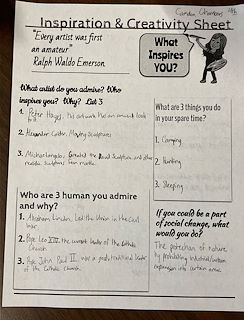 Inspiration & Creativity Sheet
"Every artist was first
an amateur"
Ralph Waldo Emerson
What
Inspires
YOU?
What artist do you admire? Who
inspires you? Why? List 3
1. Peter Hayes, his artwork has an ancient look
to it
2. Alexander Calder, Playful Sculptures
3. Michaelangelo, Created the David Sculpture and other
realistic sculptures from marble
What are 3 things you do
in your spare time?
1. Camping
2. Hunting
3. Sleeping
Who are 3 human you admire
and why?
1. Abraham Lincoln, Led the Union in the Civil
War
2. Pope Leo XIV, the current leader of the Catholic
Church
3. Pope John Paul II, was a leader
of the Catholic Church
If you could be a part
of social change, what
would you do?
The protection of nature
by prohibiting industrial/urban
expansion into certain areas